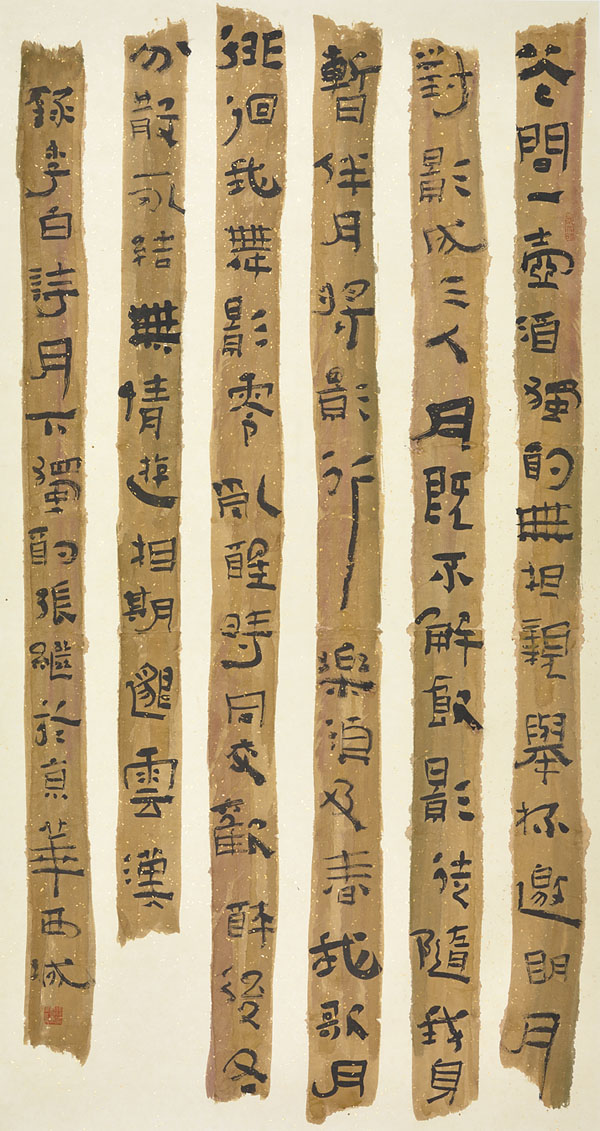 花間一壺酒獨酌無相親舉杯邀明月
對影成三人月既不解飲影徒隨我身
暫伴月將影行樂須及春我歌月
徘徊我舞影零亂醒時同交歡醉後各
分散永結無情遊相期邈雲漢
錄李白詩月下獨酌張繼於京華西城